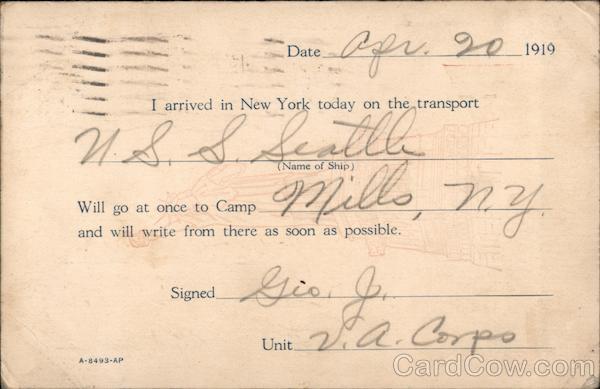 Date Apr. 20 1919
I arrived in New York today on the transport
U. S. S. Seattle
(Name of Ship)
Will go at once to Camp Mills, N.Y.
and will write from there as soon as possible.
Signed Geo. J.
Unit V. A. Corps
A-8493-AP
CardCow.com